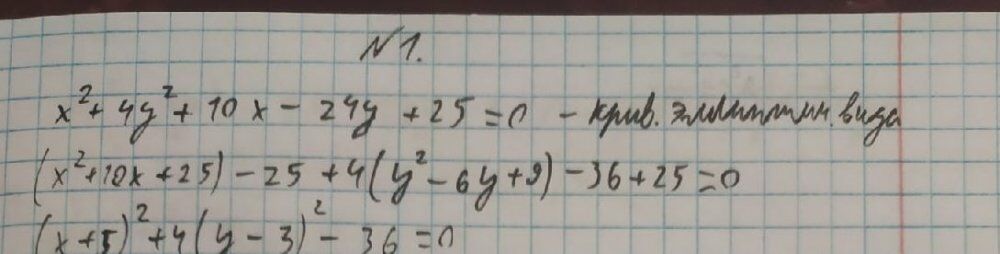 N 1.
x² + 4y² + 10x - 24y + 25 = 0 - крив. эллиптич. вида
(x² + 10x + 25) - 25 + 4(y² - 6y + 9) - 36 + 25 = 0
(x + 5)² + 4(y - 3)² - 36 = 0